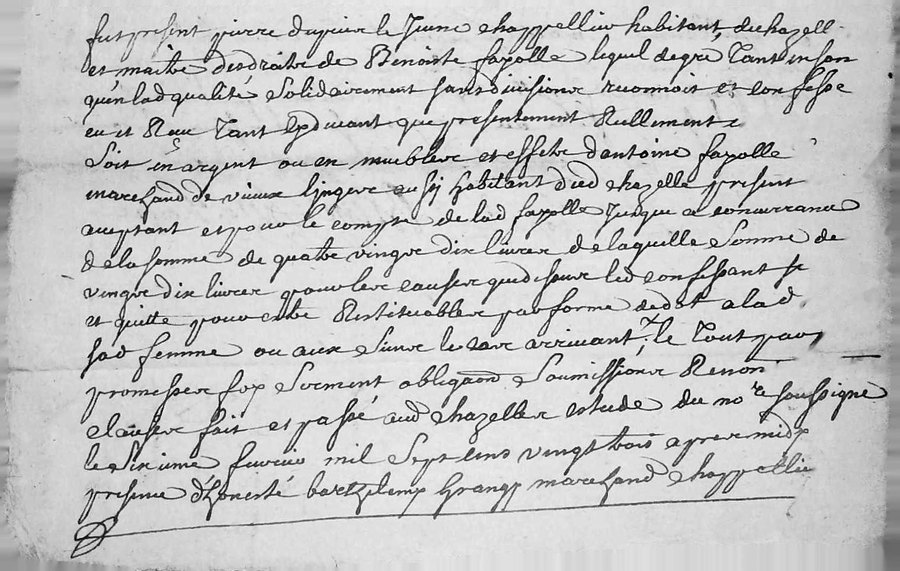 fut present pierre dupuier le Jeune chappellier habitant du chazell
et maitre desdroitz de Benoiste fayolle lequel degre Tant en son
qu'en lad qualité solidairement sans divisions reconnoit et confesse
eu et Receu Tant cydevant que presentement Reellement
soit en argent ou en meubles et effetz d'antoine fayolle
marchand de vieux linges aussy habitant dud chazelle present
acceptant et pour le compte de lad fayolle Jusque a concurrance
de la somme de quatre vingt dix livres de laquelle somme de
vingt dix livres pour les causes que dessus led confessant se
et quitte pour estre Restituables par forme de dot a lad
sad femme ou aux siens le cas arrivant le Tout par
promesses foy serment obligaon soumissions Renon
clauses fait et passé aud chazelles estude du nore soussigne
le sixieme fevrier mil sept cens vingt trois apres midy
presence d'honesté barthelemy Grangy marchand chappellier